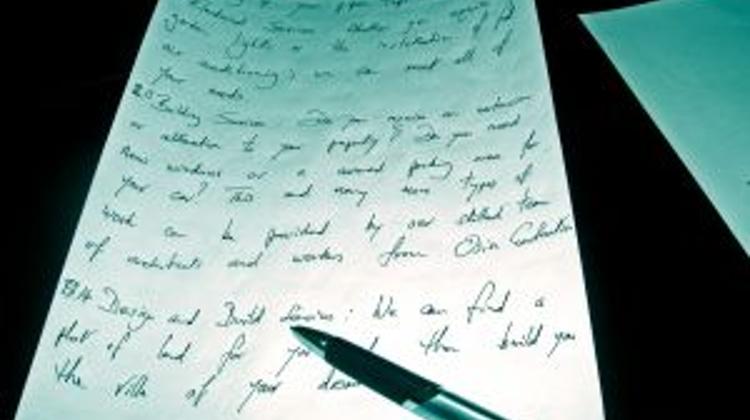 Electrical Services
garden lights or the installation of
air conditioning? we can meet all of
your needs
Building Services: Do you require an extension
or alteration to your property? Do you need
new windows or a covered parking area for
your car? This and many more types of
work can be provided by our skilled team
of architects and workers from
Design and Build Services: We can find a
plot of land for you then build you
the villa of your